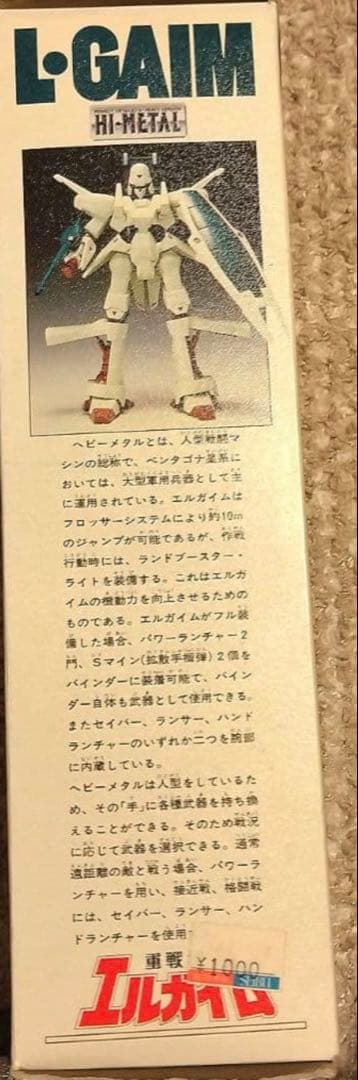 L·GAIM
HI-METAL
ヘビーメタルとは、人型戦闘マ
シンの総称で、ペンタゴナ星系に
おいては、大型軍用兵器として主
に運用されている。エルガイムは
フロッサーシステムにより約10m
のジャンプが可能であるが、作戦
行動時には、ランドブースター・
ライトを装備する。これはエルガ
イムの機動力を向上させるための
ものである。エルガイムがフル装
備した場合、パワーランチャー2
門、Sマイン(拡散手榴弾)2個を
バインダーに装着可能で、バイン
ダー自体も武器として使用できる。
またセイバー、ランサー、ハンド
ランチャーのいずれか二つを腕部
に内蔵している。
ヘビーメタルは人型をしているた
め、その「手」に各種武器を持ち換
えることができる。そのため戦況
に応じて武器を選択できる。通常
遠距離の敵と戦う場合、パワーラ
ンチャーを用い、接近戦、格闘戦
には、セイバー、ランサー、ハン
ドランチャーを使用
重戦
¥1000
エルガイム